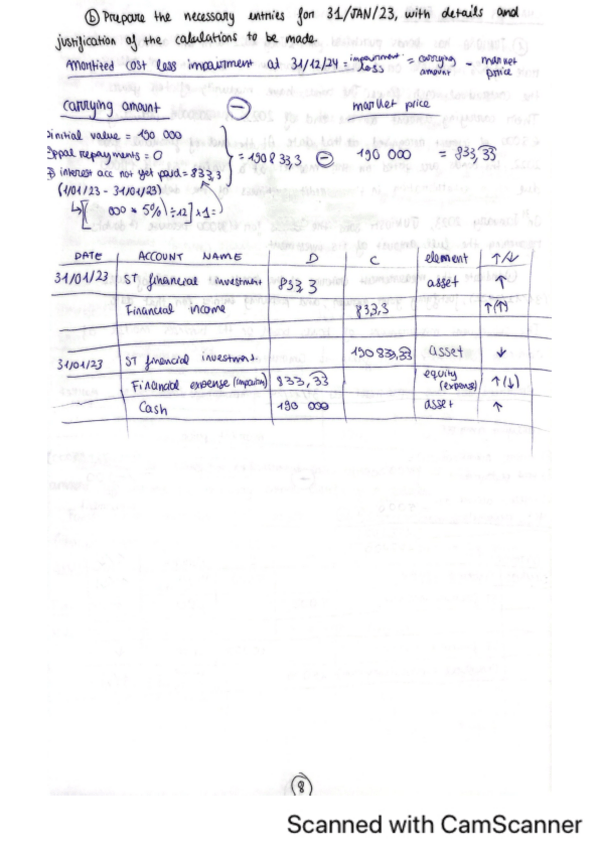 ⓑ Prepare the necessary entries for 31/JAN/23, with details and
justification of the calculations to be made.
Amortized cost less impairment at 31/12/24 = impairment loss = carrying amount - market price
carrying amount ⊖ market price
initial value = 190 000
repayments = 0
interest acc not yet paid = 833,3
(1/01/23 - 31/01/23)
= 190 833,3 ⊖ 190 000 = 833,33
↳ [ 000 * 5%) ÷ 12] * 1 =
DATE ACCOUNT NAME D C element ↑/↓
31/01/23 ST financial investment 833,3 asset ↑
Financial income 833,3 ↑(↑)
31/01/23 ST financial investment. 190 833,33 asset ↓
Financial expense 833,33 equity (expense) ↑(↓)
Cash 190 000 asset ↑
8
Scanned with CamScanner